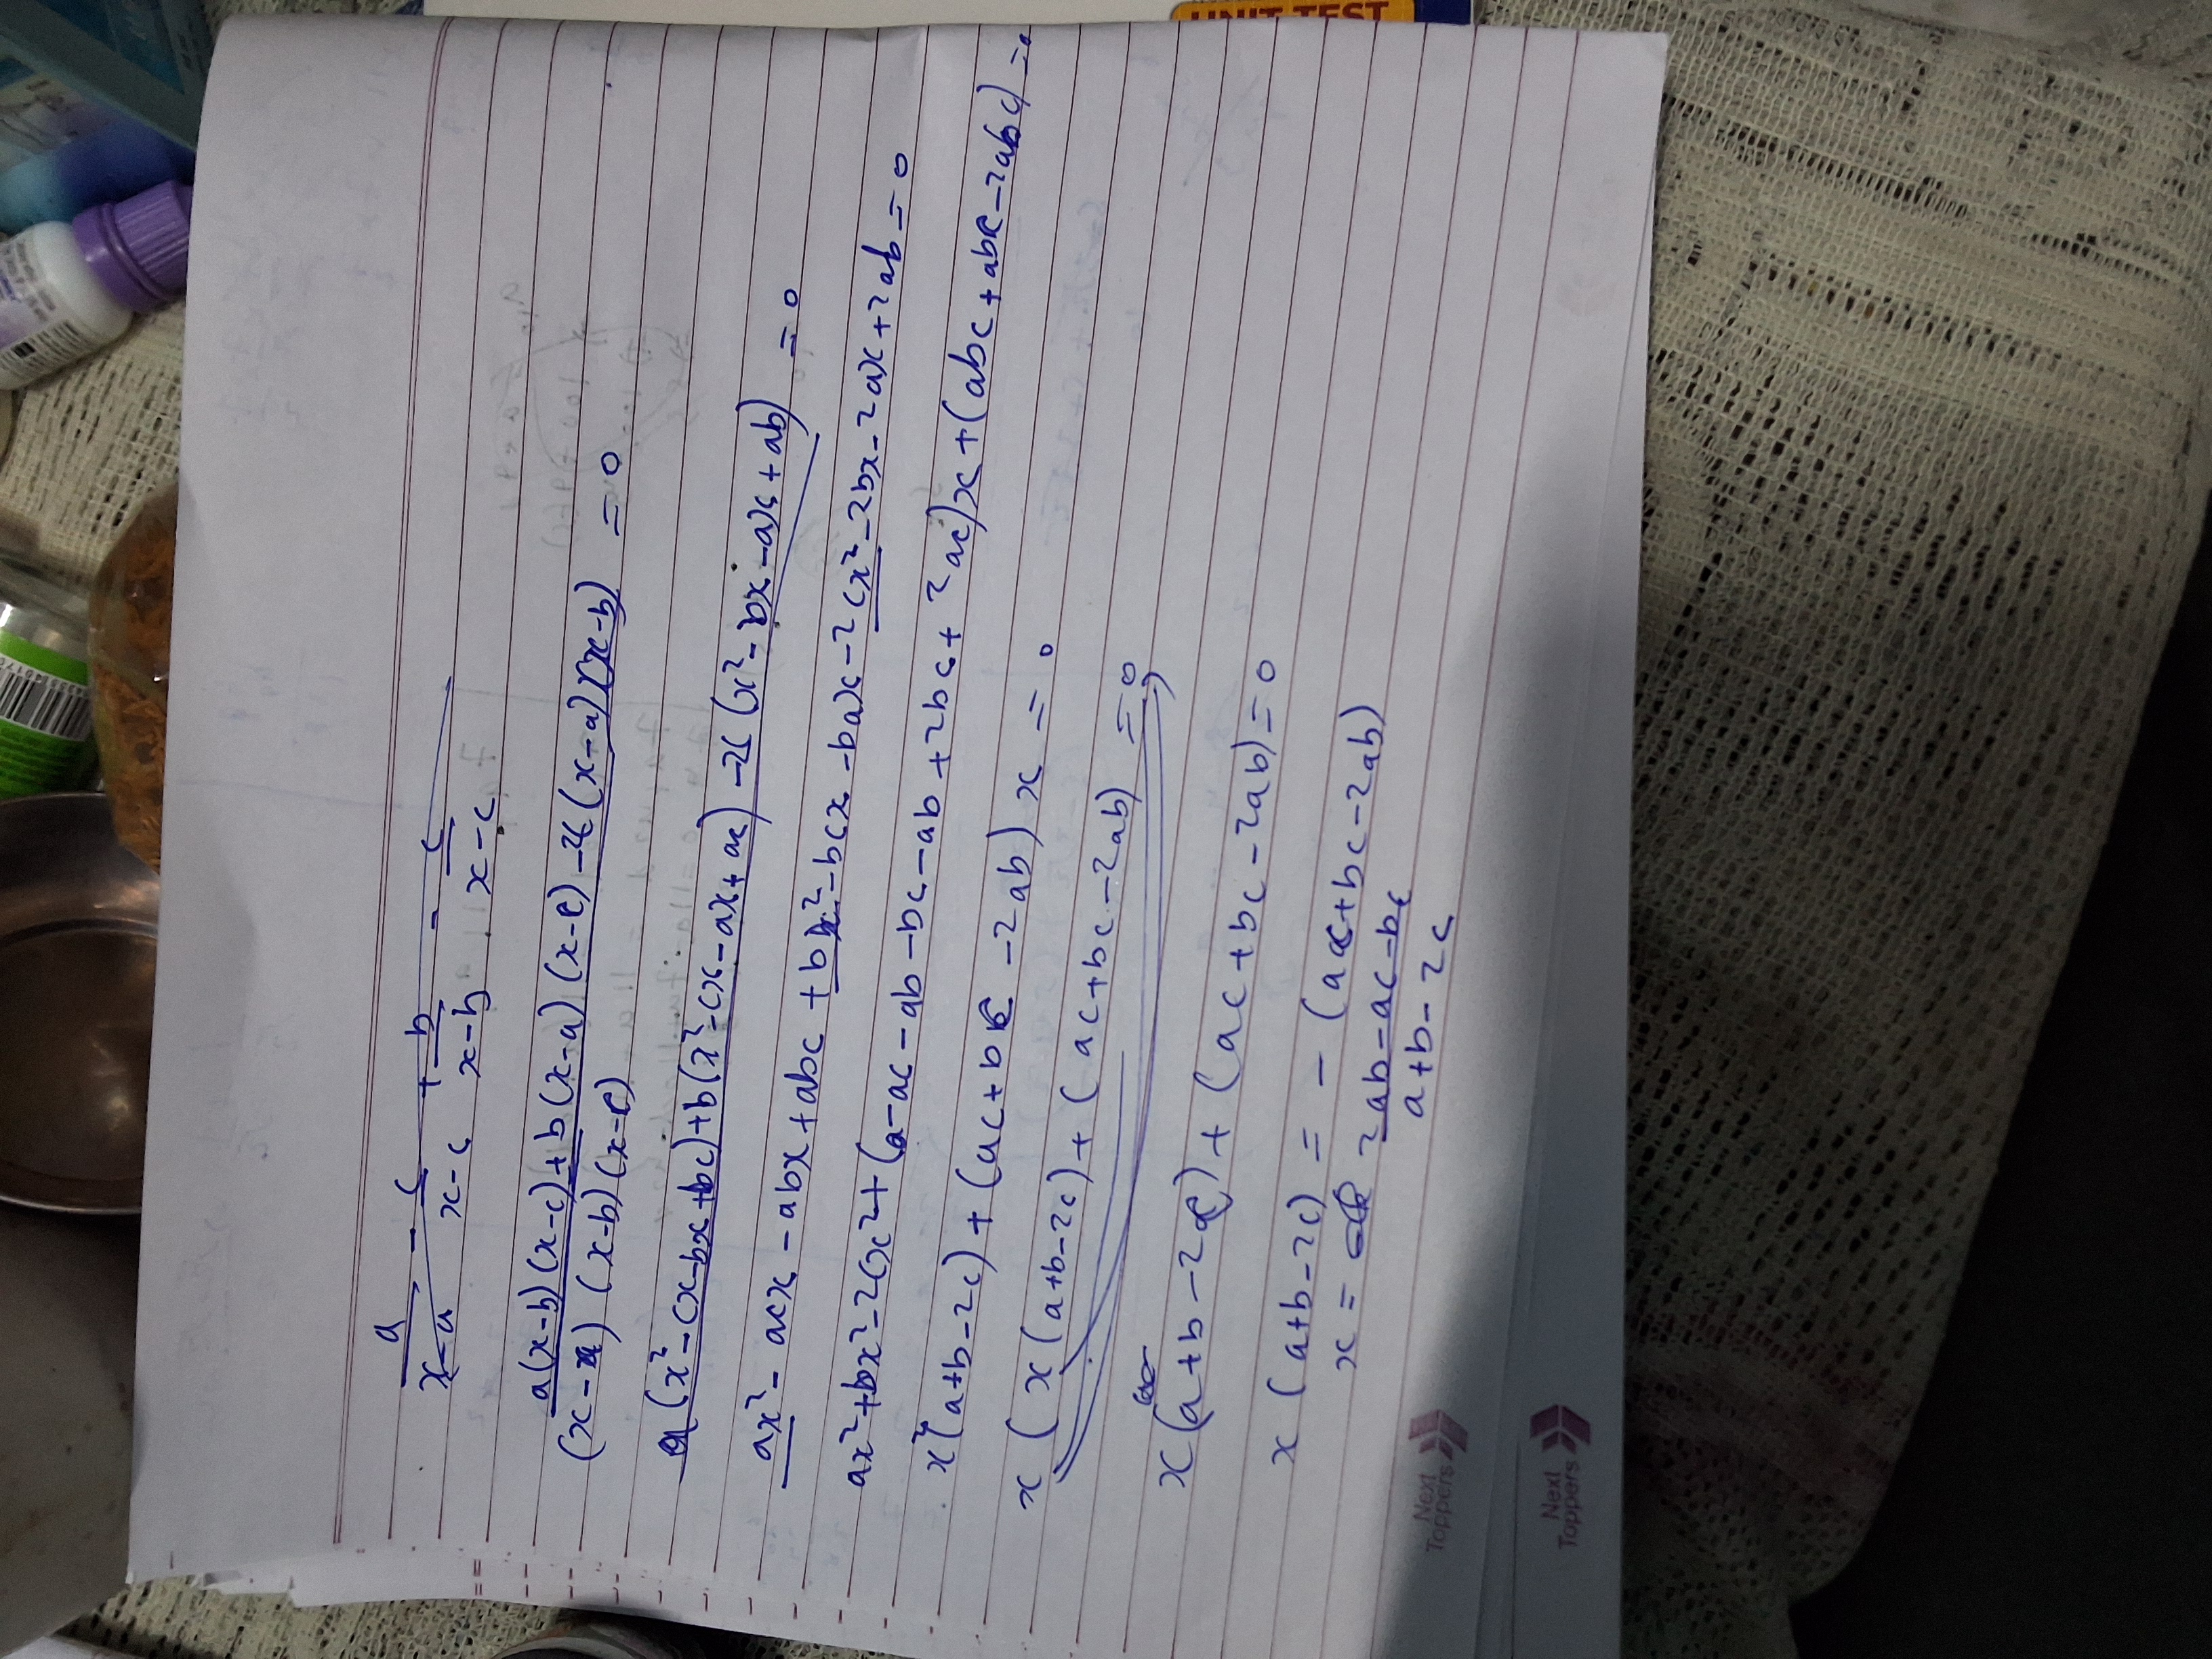 UNIT TEST
a/(x-a) - c/(x-c) + b/(x-b) - c/(x-c)
a(x-b)(x-c)+b(x-a)(x-c)-2c(x-a)(x-b) = 0
(x-a)(x-b)(x-c)
a(x²-cx-bx+bc)+b(x²-cx-ax+ac)-2c(x²-bx-ax+ab) = 0
ax²-acx-abx+abc+bx²-bcx-bax-2cx²-2bx-2ax+2ab=0
ax²+bx²-2cx2+(a-ac-ab-bc-ab+2bc+2ac)x+(abc+abc-2abc)=0
x²(a+b-2c)+(ac+bc-2ab)x=0
x(x(a+b-2c)+(ac+bc-2ab)=0
x(a+b-2c)+(ac+bc-2ab)=0
x(a+b-2c) = -(ac+bc-2ab)
x = 2ab-ac-bc
a+b-2c
Next
Toppers
Next
Toppers